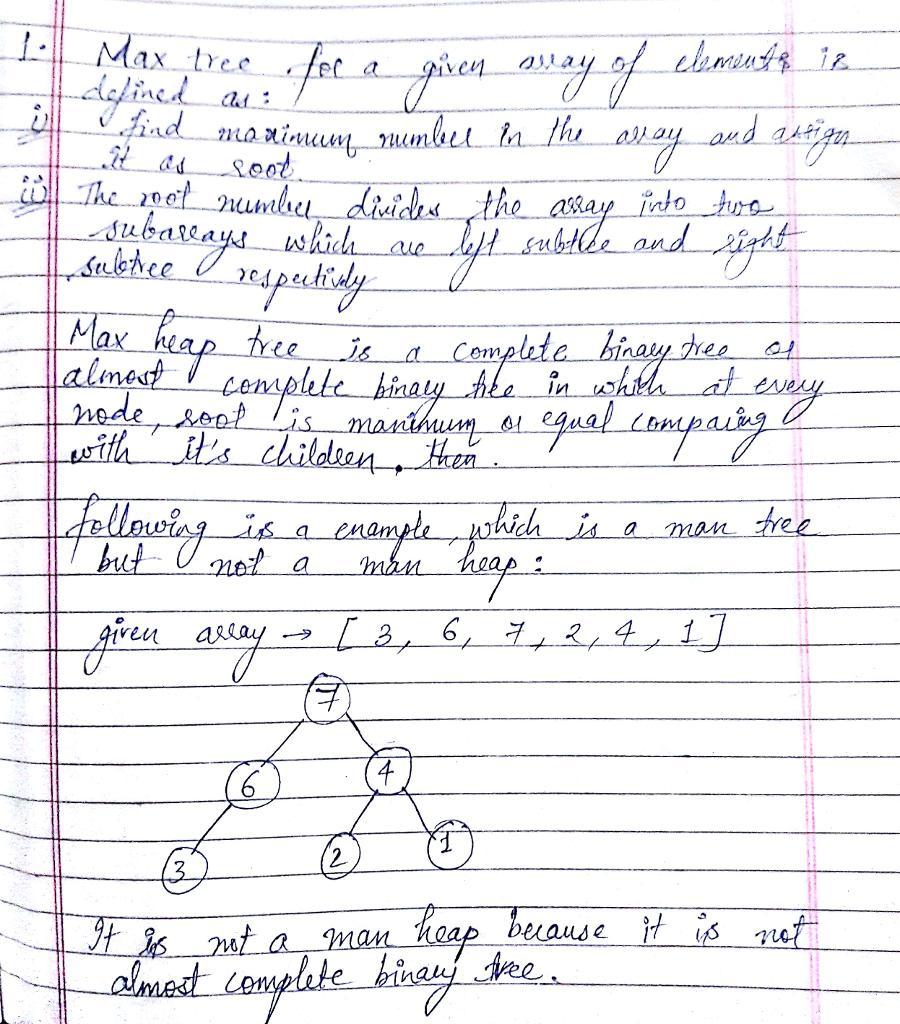 1. Max tree for a given array of elements is
defined as:
i) find maximum number in the array and assign
it as root.
ii) The root number divides the array into two
subarrays which are left subtree and right
subtree respectively
Max heap tree is a complete binary tree or
almost complete binary tree in which at every
node, root is maximum or equal comparing
with it's children. then.
following is a example, which is a max tree
but not a max heap:
given array → [3, 6, 7, 2, 4, 1]
7
6 4
3 2 1
It is not a max heap because it is not
almost complete binary tree.